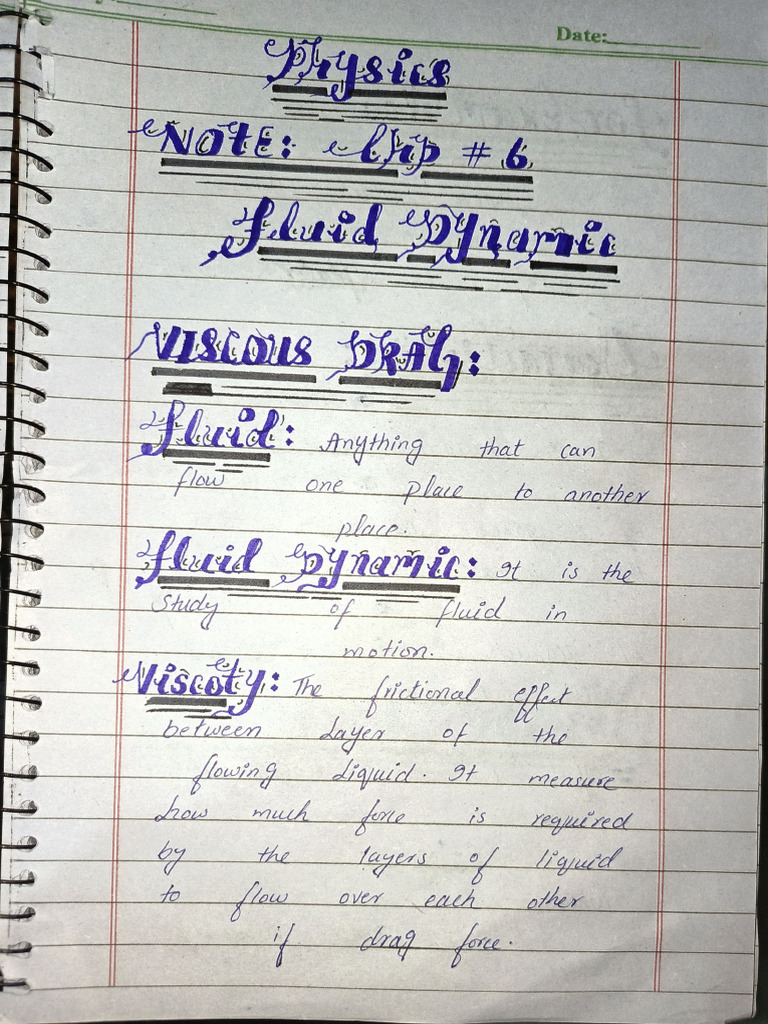 Date:
Physics
NOTE: Chp # 6
Fluid Dynamic
VISCOUS DRAG:
Fluid: Anything that can
flow one place to another
place.
Fluid Dynamic: It is the
study of fluid in
motion.
Viscoty: The frictional effect
between layer of the
flowing liquid. It measure
how much force is required
by the layers of liquid
to flow over each other
if drag force.